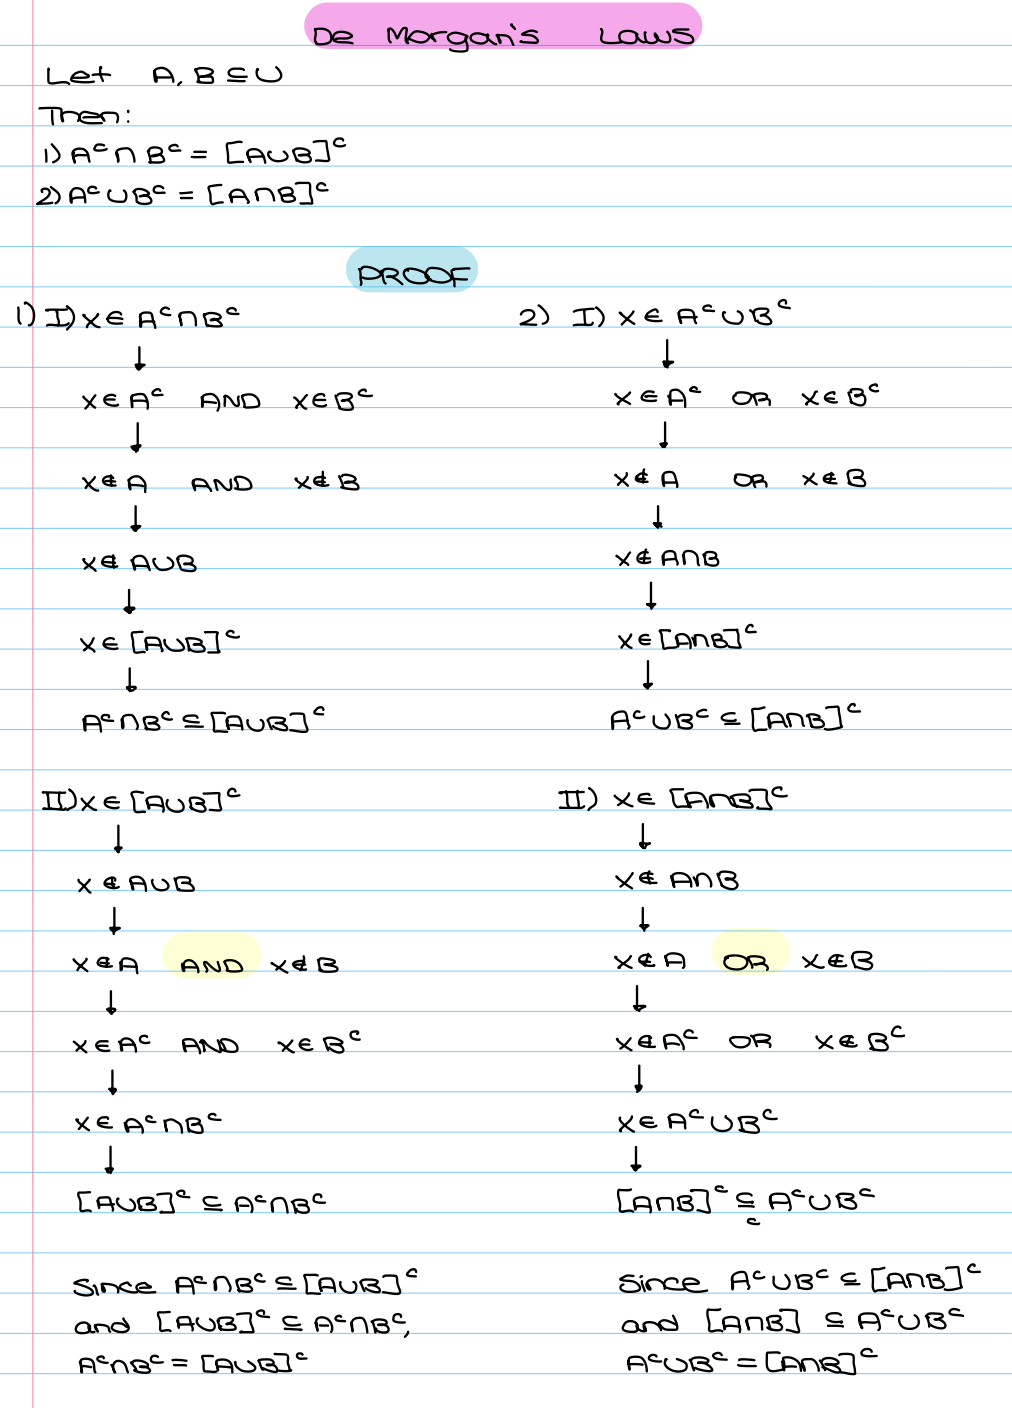 De Morgan's Laws
Let A, B ⊆ U
Then:
1) Aᶜ ∩ Bᶜ = [A∪B]ᶜ
2) Aᶜ ∪ Bᶜ = [A∩B]ᶜ
PROOF
1) I) x ∈ Aᶜ∩Bᶜ
↓
x ∈ Aᶜ AND x ∈ Bᶜ
↓
x ∉ A AND x ∉ B
↓
x ∉ A∪B
↓
x ∈ [A∪B]ᶜ
↓
Aᶜ∩Bᶜ ⊆ [A∪B]ᶜ
II) x ∈ [A∪B]ᶜ
↓
x ∉ A∪B
↓
x ∉ A AND x ∉ B
↓
x ∈ Aᶜ AND x ∈ Bᶜ
↓
x ∈ Aᶜ∩Bᶜ
↓
[A∪B]ᶜ ⊆ Aᶜ∩Bᶜ
Since Aᶜ∩Bᶜ ⊆ [A∪B]ᶜ
and [A∪B]ᶜ ⊆ Aᶜ∩Bᶜ,
Aᶜ∩Bᶜ = [A∪B]ᶜ
2) I) x ∈ Aᶜ∪Bᶜ
↓
x ∈ Aᶜ OR x ∈ Bᶜ
↓
x ∉ A OR x ∉ B
↓
x ∉ A∩B
↓
x ∈ [A∩B]ᶜ
↓
Aᶜ∪Bᶜ ⊆ [A∩B]ᶜ
II) x ∈ [A∩B]ᶜ
↓
x ∉ A∩B
↓
x ∉ A OR x ∉ B
↓
x ∉ Aᶜ OR x ∉ Bᶜ
↓
x ∈ Aᶜ∪Bᶜ
↓
[A∩B]ᶜ ⊆ Aᶜ∪Bᶜ
c
Since Aᶜ∪Bᶜ ⊆ [A∩B]ᶜ
and [A∩B] ⊆ Aᶜ∪Bᶜ
Aᶜ∪Bᶜ = [A∩B]ᶜ